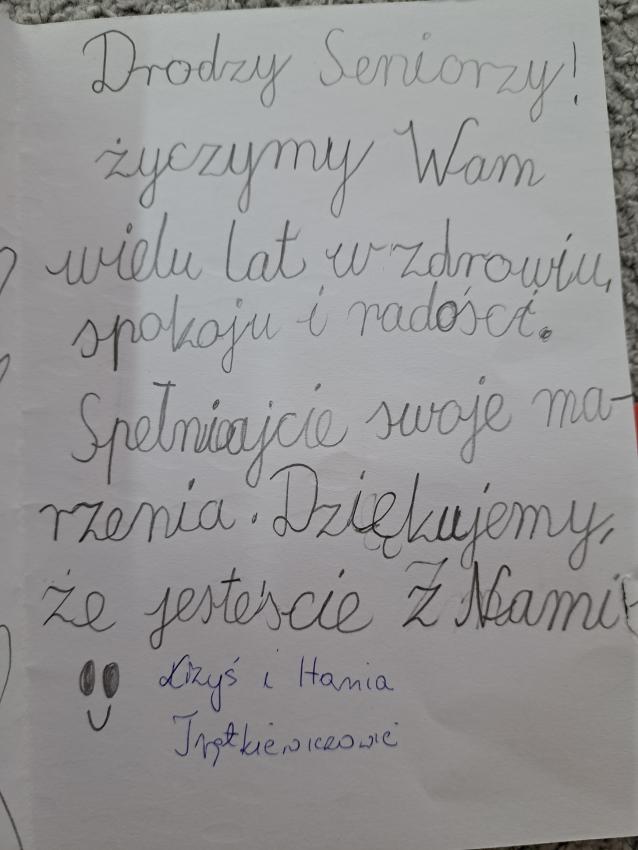 Drodzy Seniorzy!
życzymy Wam
wielu lat w zdrowiu,
spokoju i radości.
Spełniajcie swoje ma-
rzenia. Dziękujemy,
że jesteście z Nami
i Hania